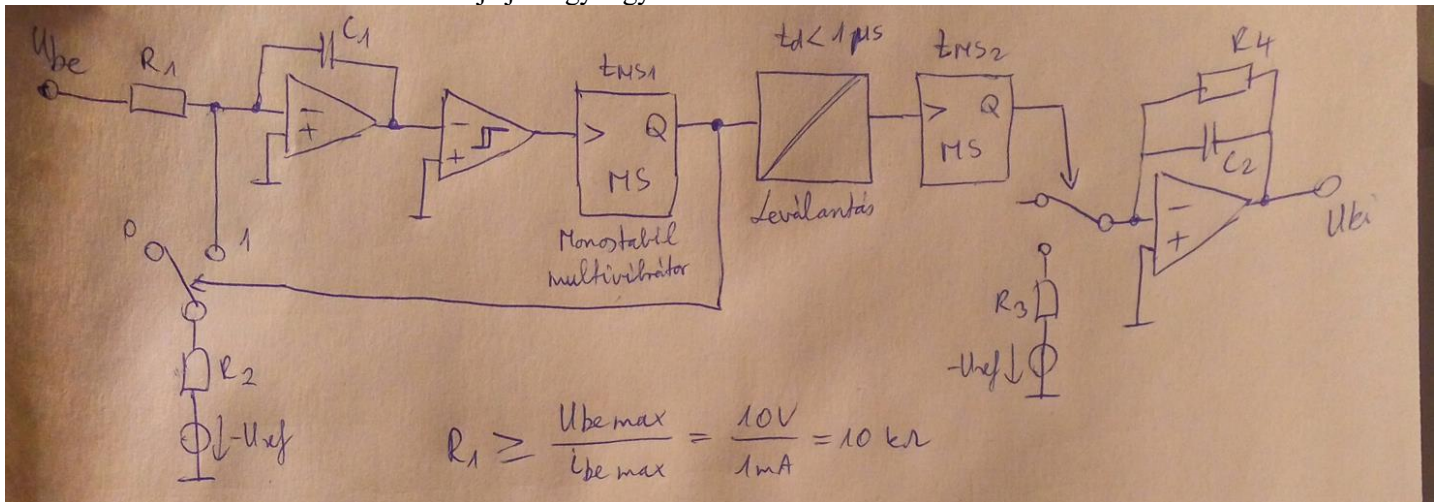 Ube
R1
C1
-
+
-
+
tMS1
Q
MS
Monostabil
multivibrátor
td < 1 µs
Leválantás
tMS2
Q
MS
R4
C2
-
+
Uki
0
1
R2
-Uref
R3
-Uref
R1 ≥ Ube max / ibe max = 10V / 1mA = 10 kΩ